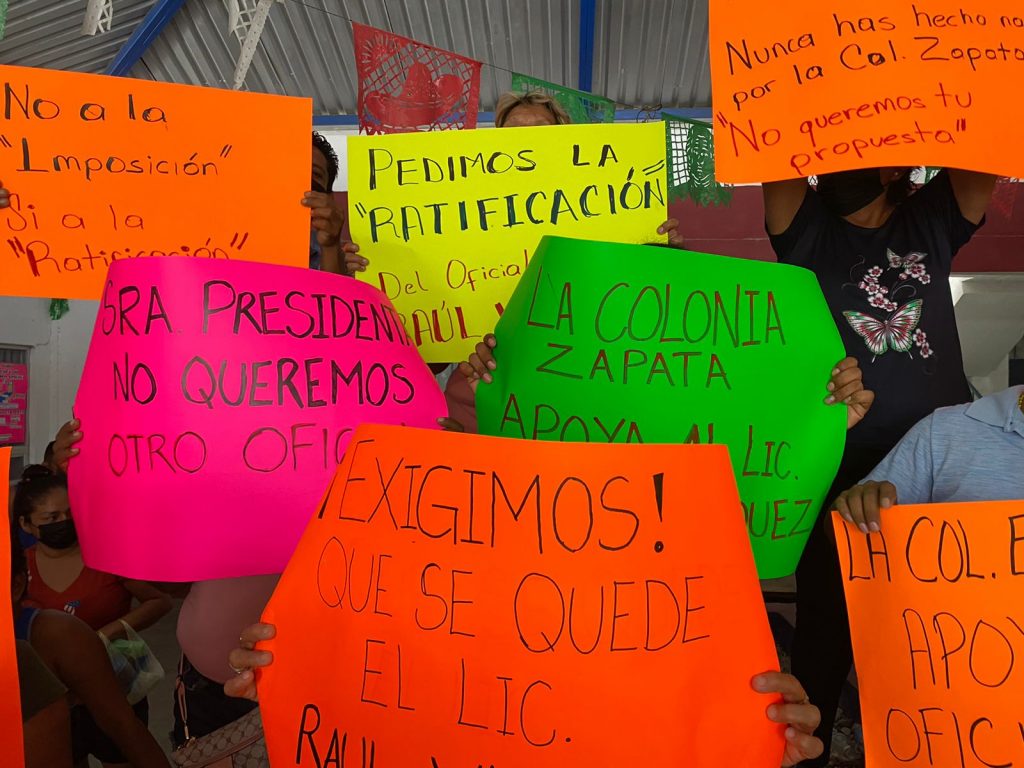 No a la
"Imposición"
Si a la
"Ratificación"
PEDIMOS LA
"RATIFICACIÓN"
Del Oficial
RAÚL
Nunca has hecho
por la Col. Zapata
"No queremos tu
propuesta"
SRA. PRESIDENT
NO QUEREMOS
OTRO OFIC
LA COLONIA
ZAPATA
APOYA AL LIC.
UEZ
¡EXIGIMOS!
QUE SE QUEDE
EL LIC.
RAUL
LA COL. E
APOY
OFICI